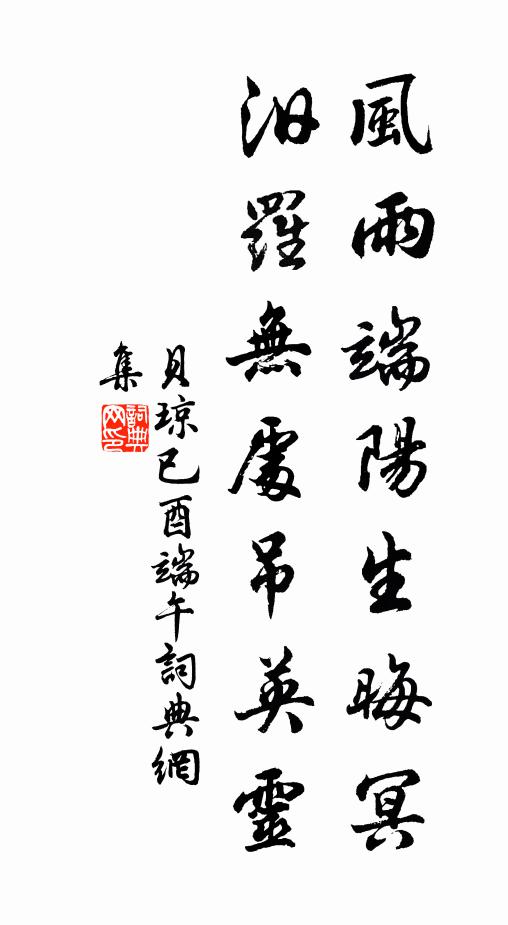 風雨端陽生晦冥
汨羅無處吊英靈
貝琼已酉端午詞典網
集
詞典网印